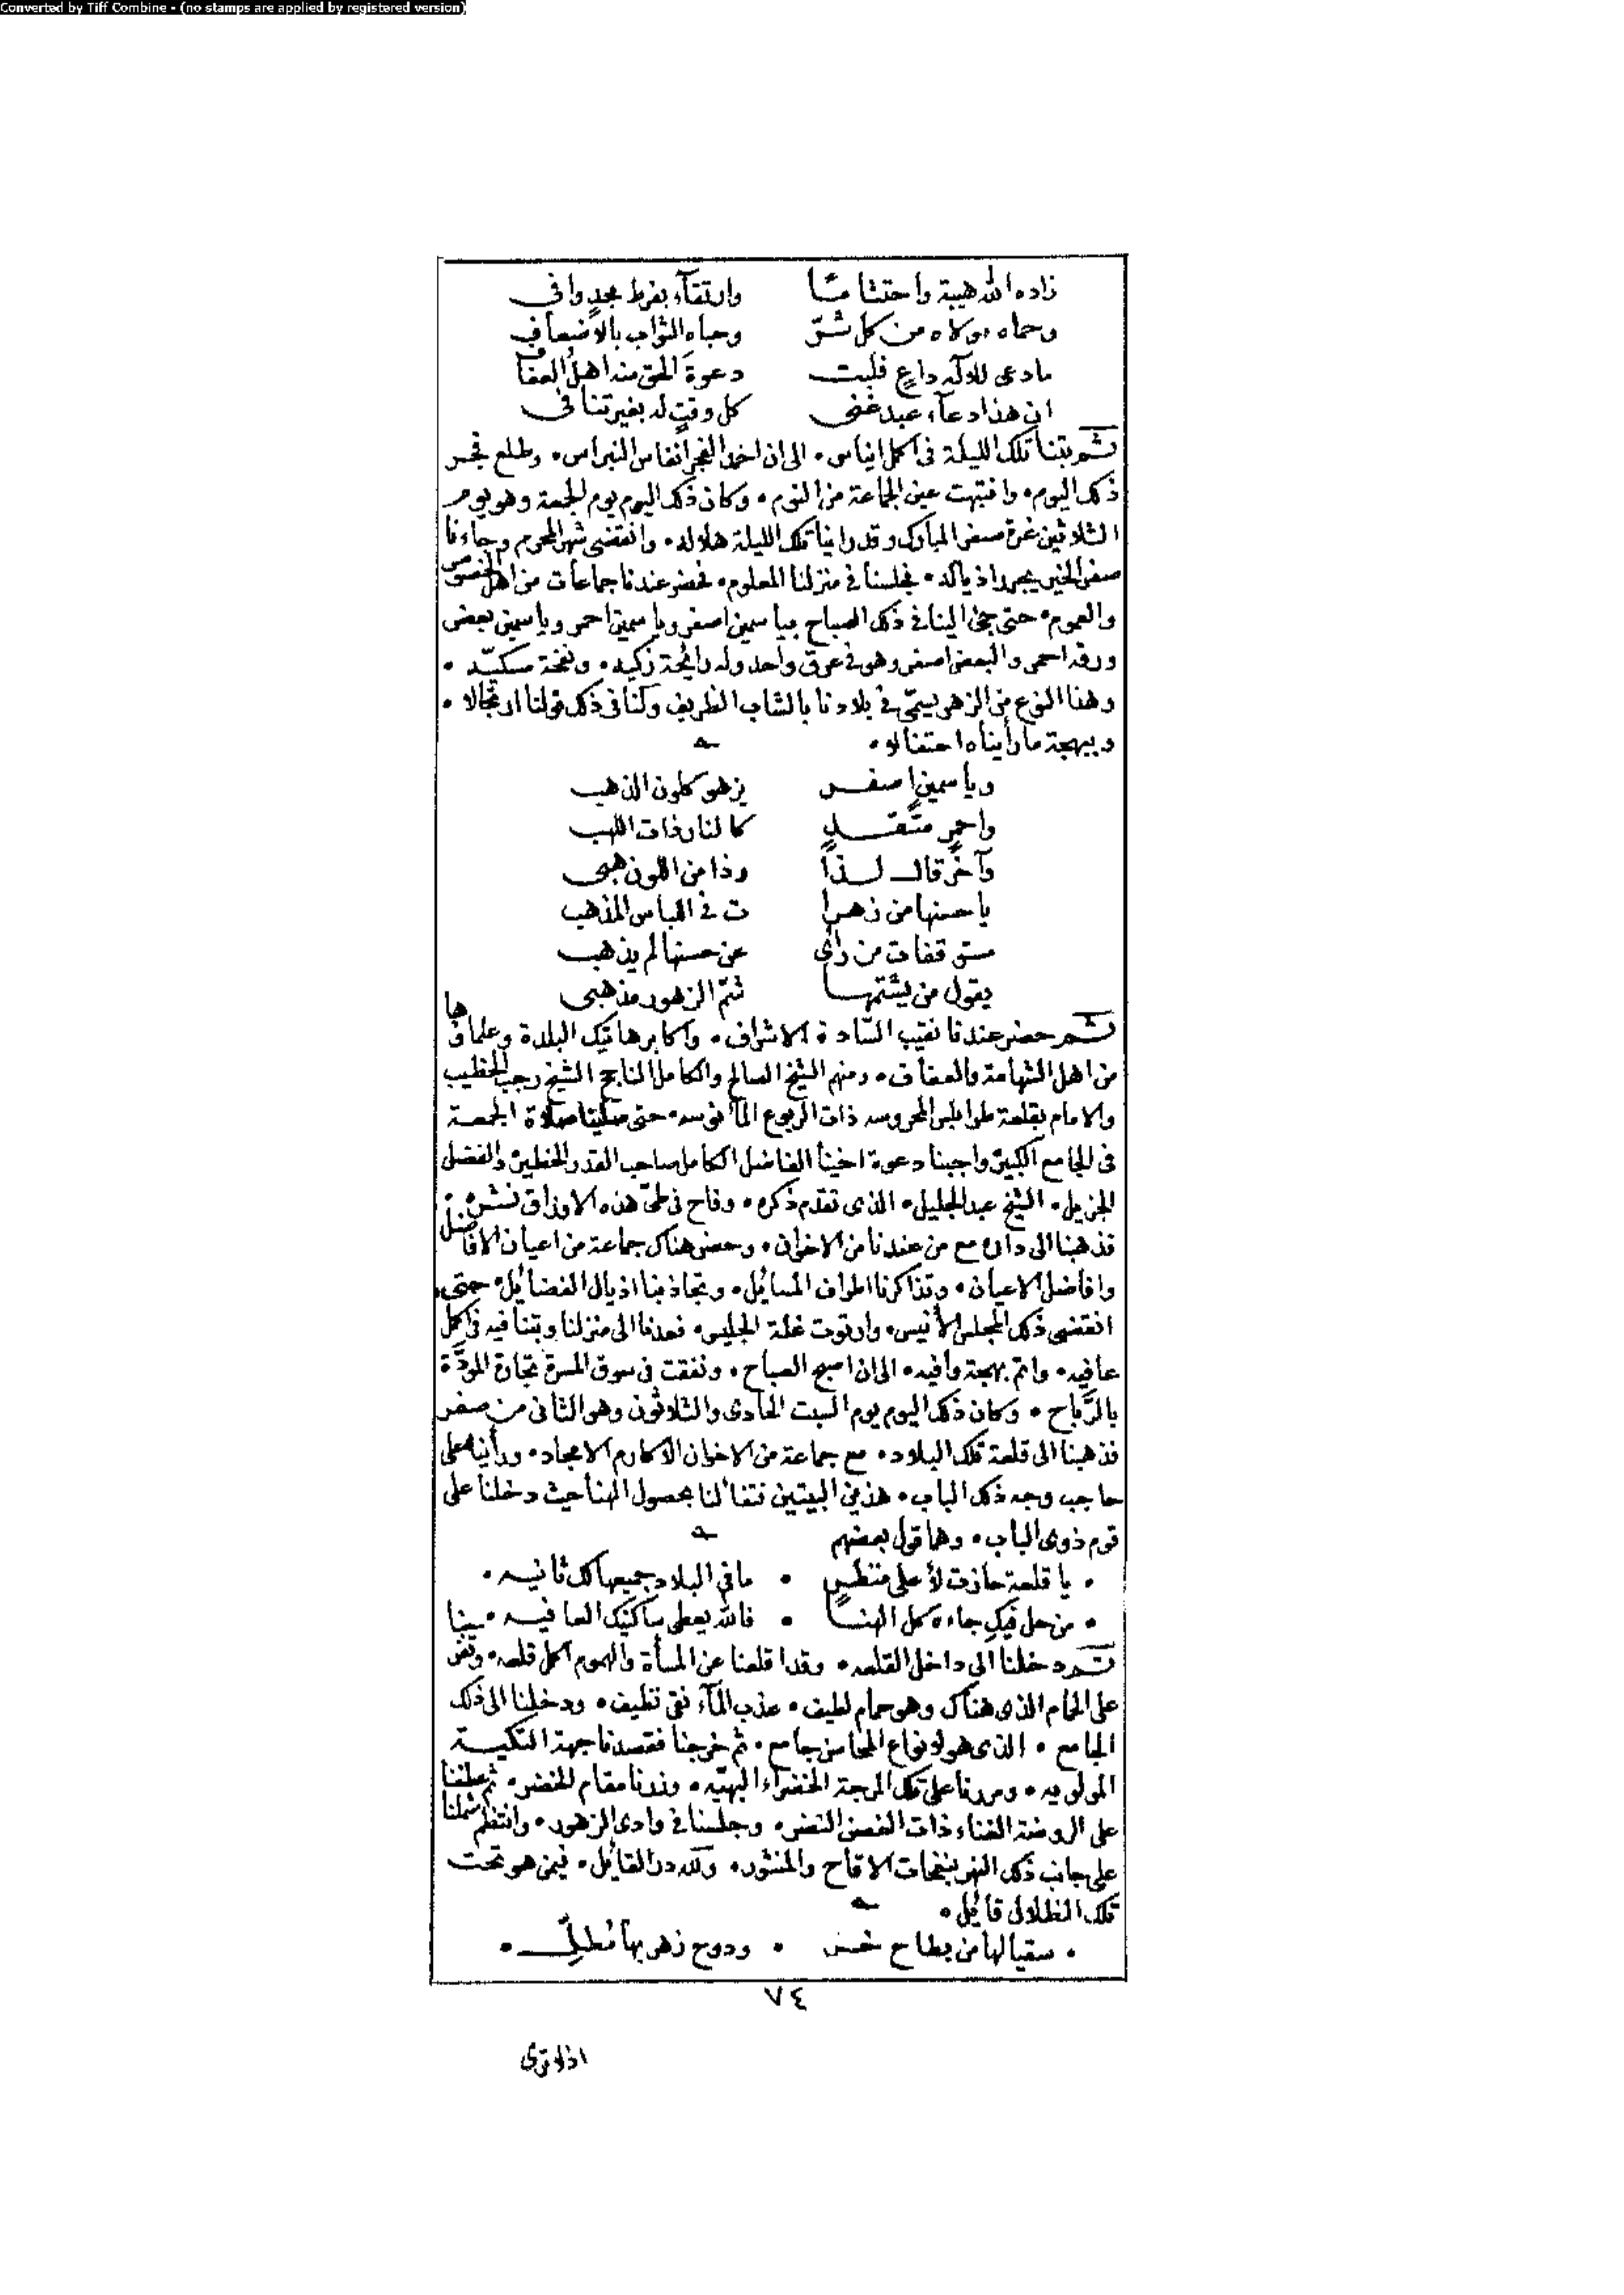 Converted by Tiff Combine - (no stamps are applied by registered version)
زاده الله هيبة واحتشاما وارتقآء بفرط مجدٍ وافى
وحماه مولاه من كل شرّ وحباه الثواب بالأضعافِ
مادعى للاله داعٍ فلبت دعوةَ الحق منه اهلُ العفاف
ان هذا دعآء عبد غنى كل وقتٍ له بغير تنافى
ثم بتنا تلك الليلة فى اكمل ايناس • الى ان اخمد الفجر أنفاس النبراس • وطلع فجر
ذلك اليوم • وانتبهت عين الجماعة من النوم • وكان ذلك اليوم يوم الجمعة وهو يوم
الثلاثين غرة صفر المبارك وقد راينا تلك الليلة هلاله • وانقضى شهر المحرم وجاءنا
صفر الخير يجر اذياله • فجلسنا فى منزلنا المعلوم • فحضر عندنا جماعات من اهل الخصوص
والعموم • حتى جئ الينا فى ذلك الصباح بياسمين اصفر وياسمين احمر وياسمين بعض
ورقه احمر والبعض اصفر وهو فى عرق واحد وله رائحة زكيه • ونفحة مسكيّه •
وهذا النوع من الزهر يسمّى فى بلادنا بالشاب الظريف ولنا فى ذلك قولنا ارتجالا •
وببهجة ما رأيناه احتفالا •
وياسمينٍ اصفر يزهو كلون الذهب
واحمرٍ متّقد كالنار ذات اللهب
وآخرٌ قال لذا وذا من اللون هبى
يا حسنها من زهرا ت فى اللباس المذهب
مستوقفات من رأى عن حسنها لم يذهب
يقول من يشتمّها شمّ الزهور مذهبى
ثم حضر عندنا نقيب السّادة الاشراف • واكابر هاتيك البلدة وعلماؤها
من اهل الشهامة والعفاف • ومنهم الشيخ الصالح والكامل الناجح الشيخ رجب الخطيب
والامام بقلعة طرابلس المحروسه ذات الربوع المأنوسه • حتى صلينا صلاة الجمعة
فى الجامع الكبير واجبنا دعوة اخينا الفاضل الكامل صاحب القدر الخطير والفضل
الجزيل • الشيخ عبد الجليل • الذى تقدم ذكره • وفاح فى طىّ هذه الاوراق نشره •
فذهبنا الى داره مع من عندنا من الاخوان • وحضر هناك جماعة من اعيان الافاضل
وافاضل الاعيان • وتذاكرنا اطراف المسائل • وتجاذبنا اذيال الفضائل • حتى
انقضى ذلك المجلس الأنيس • وارتوت غلة الجليس • فعدنا الى منزلنا وبتنا فيه فى اكمل
عافيه • واتم بهجة وافيه • الى ان اصبح الصباح • ونفقت فى سوق المسرة تجارة المودّة
بالرّباح • وكان ذلك اليوم يوم السبت الحادى والثلاثون وهو الثانى من صفر
فذهبنا الى قلعة تلك البلاد • مع جماعة من الاخوان الاكارم الامجاد • ورأينا على
حاجب وجه ذلك الباب • هذين البيتين فتفأّلنا بحصول الهنا حيث دخلنا على
قوم ذوى الباب • وهما قول بعضهم
• يا قلعة حازت لأعلى منظرٍ • ما فى البلاد جميعها لك ثانيه •
• من حل فيكِ جاءه كل الهنا • فالله يعطى ساكنيك العافيه •
ثم دخلنا الى داخل القلعه • وقد اقلعنا عن المسأة والهموم اكمل قلعه • وتفرجنا
على الحمام الذى هناك وهو حمام لطيف • عذب المآء نقى نظيف • ودخلنا الى ذلك
الجامع • الذى هو لانواع المحاسن جامع • ثم خرجنا فقصدنا جهة التكية
المولويه • ومررنا على تلك المرجة الخضراء البهيّه • وزرنا مقام الخضر • ثم عطفنا
على الروضة الغناء ذات الغصن النضر • وجلسنا فى وادى الزهور • وانتظم شملنا
على جانب ذلك النهر بنفحات الاقاح والمنثور • ولله در القائل • فيمن هو تحت
تلك الظلال قائل •
• سقيا لها من بطاح خز • ودوح زهر بها مُطلّ •
٧٤
اذلاترى